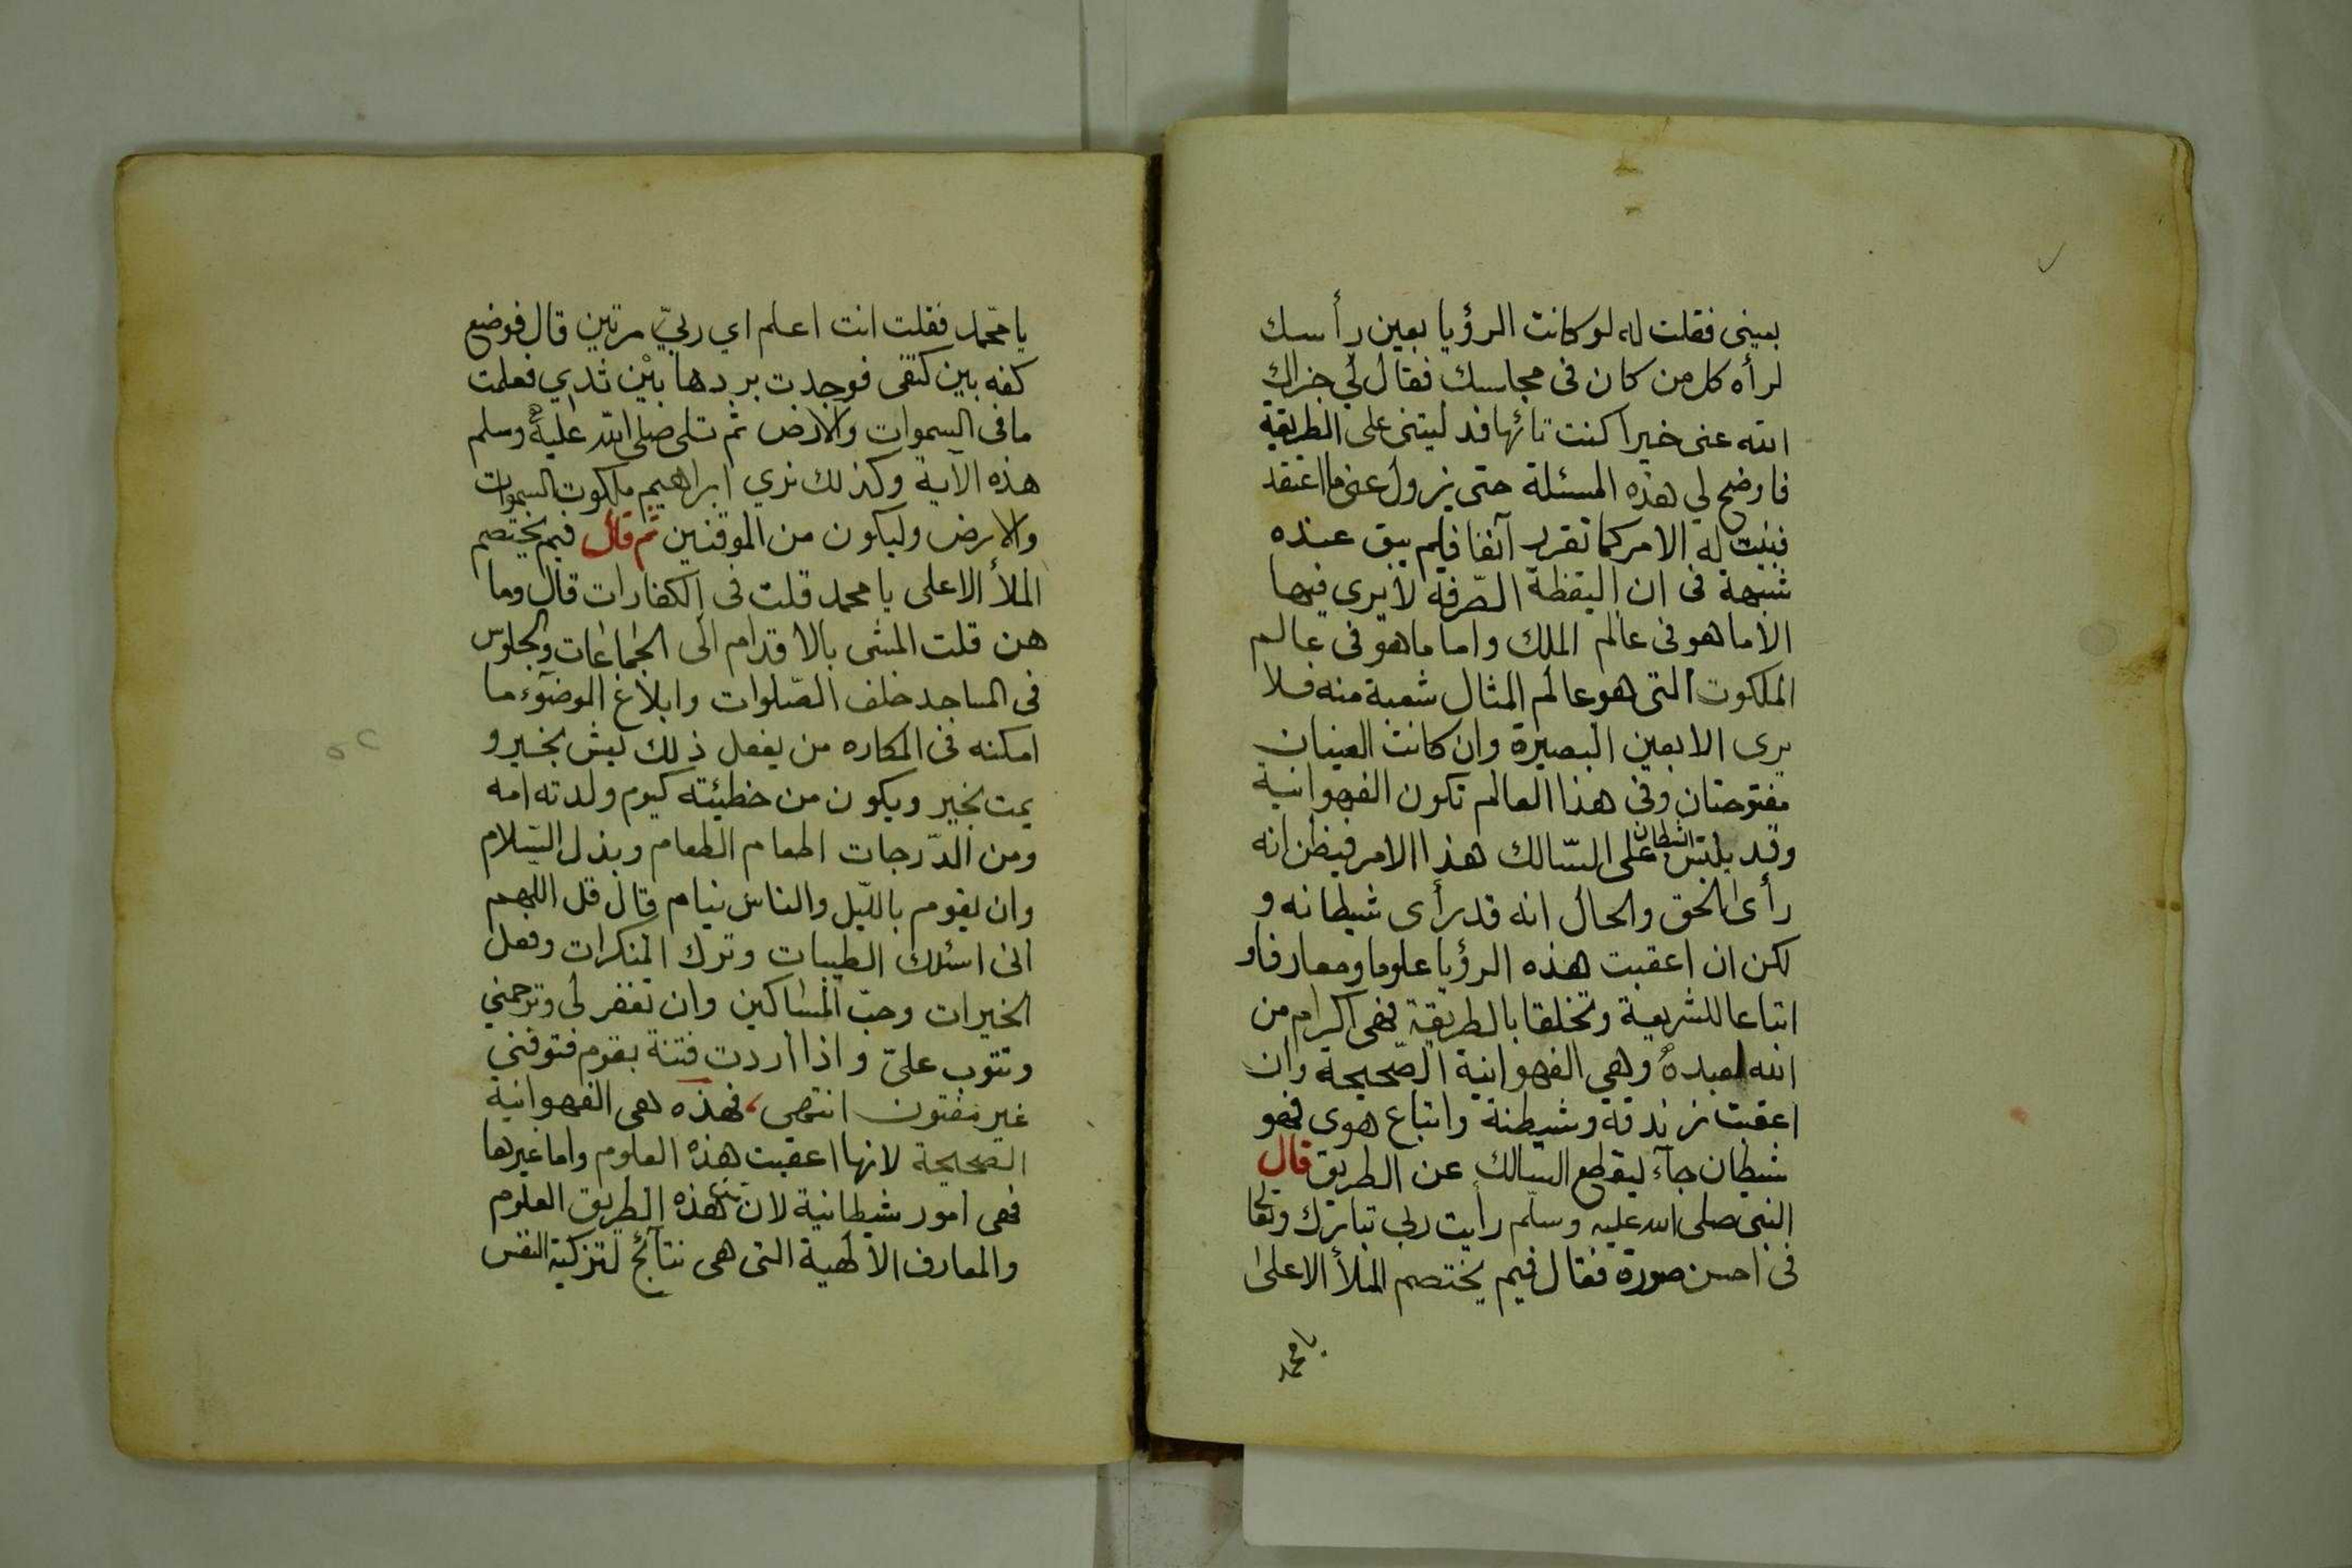 بعينى فقلت له لو كانت الرؤيا بعين رأسك
لرأه كل من كان فى مجلسك فقال لي جزاك
الله عنى خيرا كنت تائها فدليتنى على الطريقة
فاوضح لي هذه المسئلة حتى يزول عنى ما اعتقد
فبينت له الامر كما تقرر آنفا فلم يبق عنده
شبهة فى ان اليقظة الصّرفة لا يرى فيها
الا ما هو فى عالم الملك واما ما هو فى عالم
الملكوت التى هو عالم المثال شعبة منه فلا
يرى الا بعين البصيرة وان كانت العينان
مفتوحتان وفى هذا العالم تكون الفهوانية
وقد يلبّس الشيطان على السّالك هذا الامر فيظن انه
رأى الحق والحال انه قد رأى شيطانه و
لكن ان اعقبت هذه الرؤيا علوما ومعارفا و
اتباعا للشريعة وتخلقا بالطريقة فهى اكرام من
الله لعبده وهي الفهوانية الصّحيحة وان
اعقبت زندقة وشيطنة واتباع هوى فهو
شيطان جآء ليقطع السالك عن الطريق قال
النبى صلى الله عليه وسلّم رأيت ربى تبارك وتعا
فى احسن صورة فقال فيم يختصم الملأ الاعلى
يا محمد
يا محمد فقلت انت اعلم اي ربيّ مرتين قال فوضع
كفه بين كتفى فوجدت بردها بيْن ثديي فعلمت
ما فى السموات والارض ثم تلى صلى الله عليه وسلم
هذه الآية وكذلك نري ابراهيم ملكوت السموات
والارض وليكون من الموقنين ثم قال فيم يختصم
الملأ الاعلى يا محمد قلت فى الكفارات قال وما
هن قلت المشى بالاقدام الى الجماعات والجلوس
فى المساجد خلف الصّلوات وابلاغ الوضوء ما
امكنه فى المكاره من يفعل ذلك يعش بخير و
يمت بخير ويكون من خطيئته كيوم ولدته امه
ومن الدّرجات اطعام الطعام وبذل السّلام
وان يقوم بالليّل والناس نيام قال قل اللهم
انى اسئلك الطيبات وترك المنكرات وفعل
الخيرات وحبّ المساكين وان تغفر لى وترحمني
وتتوب علىّ واذا أردت فتنة بقوم فتوفني
غير مفتون انتهى، فهذه هى الفهوانية
الصحيحة لانها اعقبت هذه العلوم واما غيرها
فهى امور شيطانية لان هذه الطريق العلوم
والمعارف الالهية التى هى نتآئج لتزكية النفس